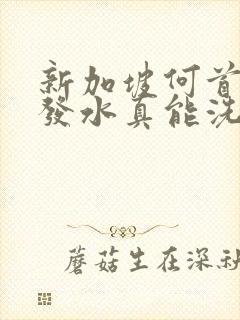 新加坡何首
發水真能洗
蘑菇生在深